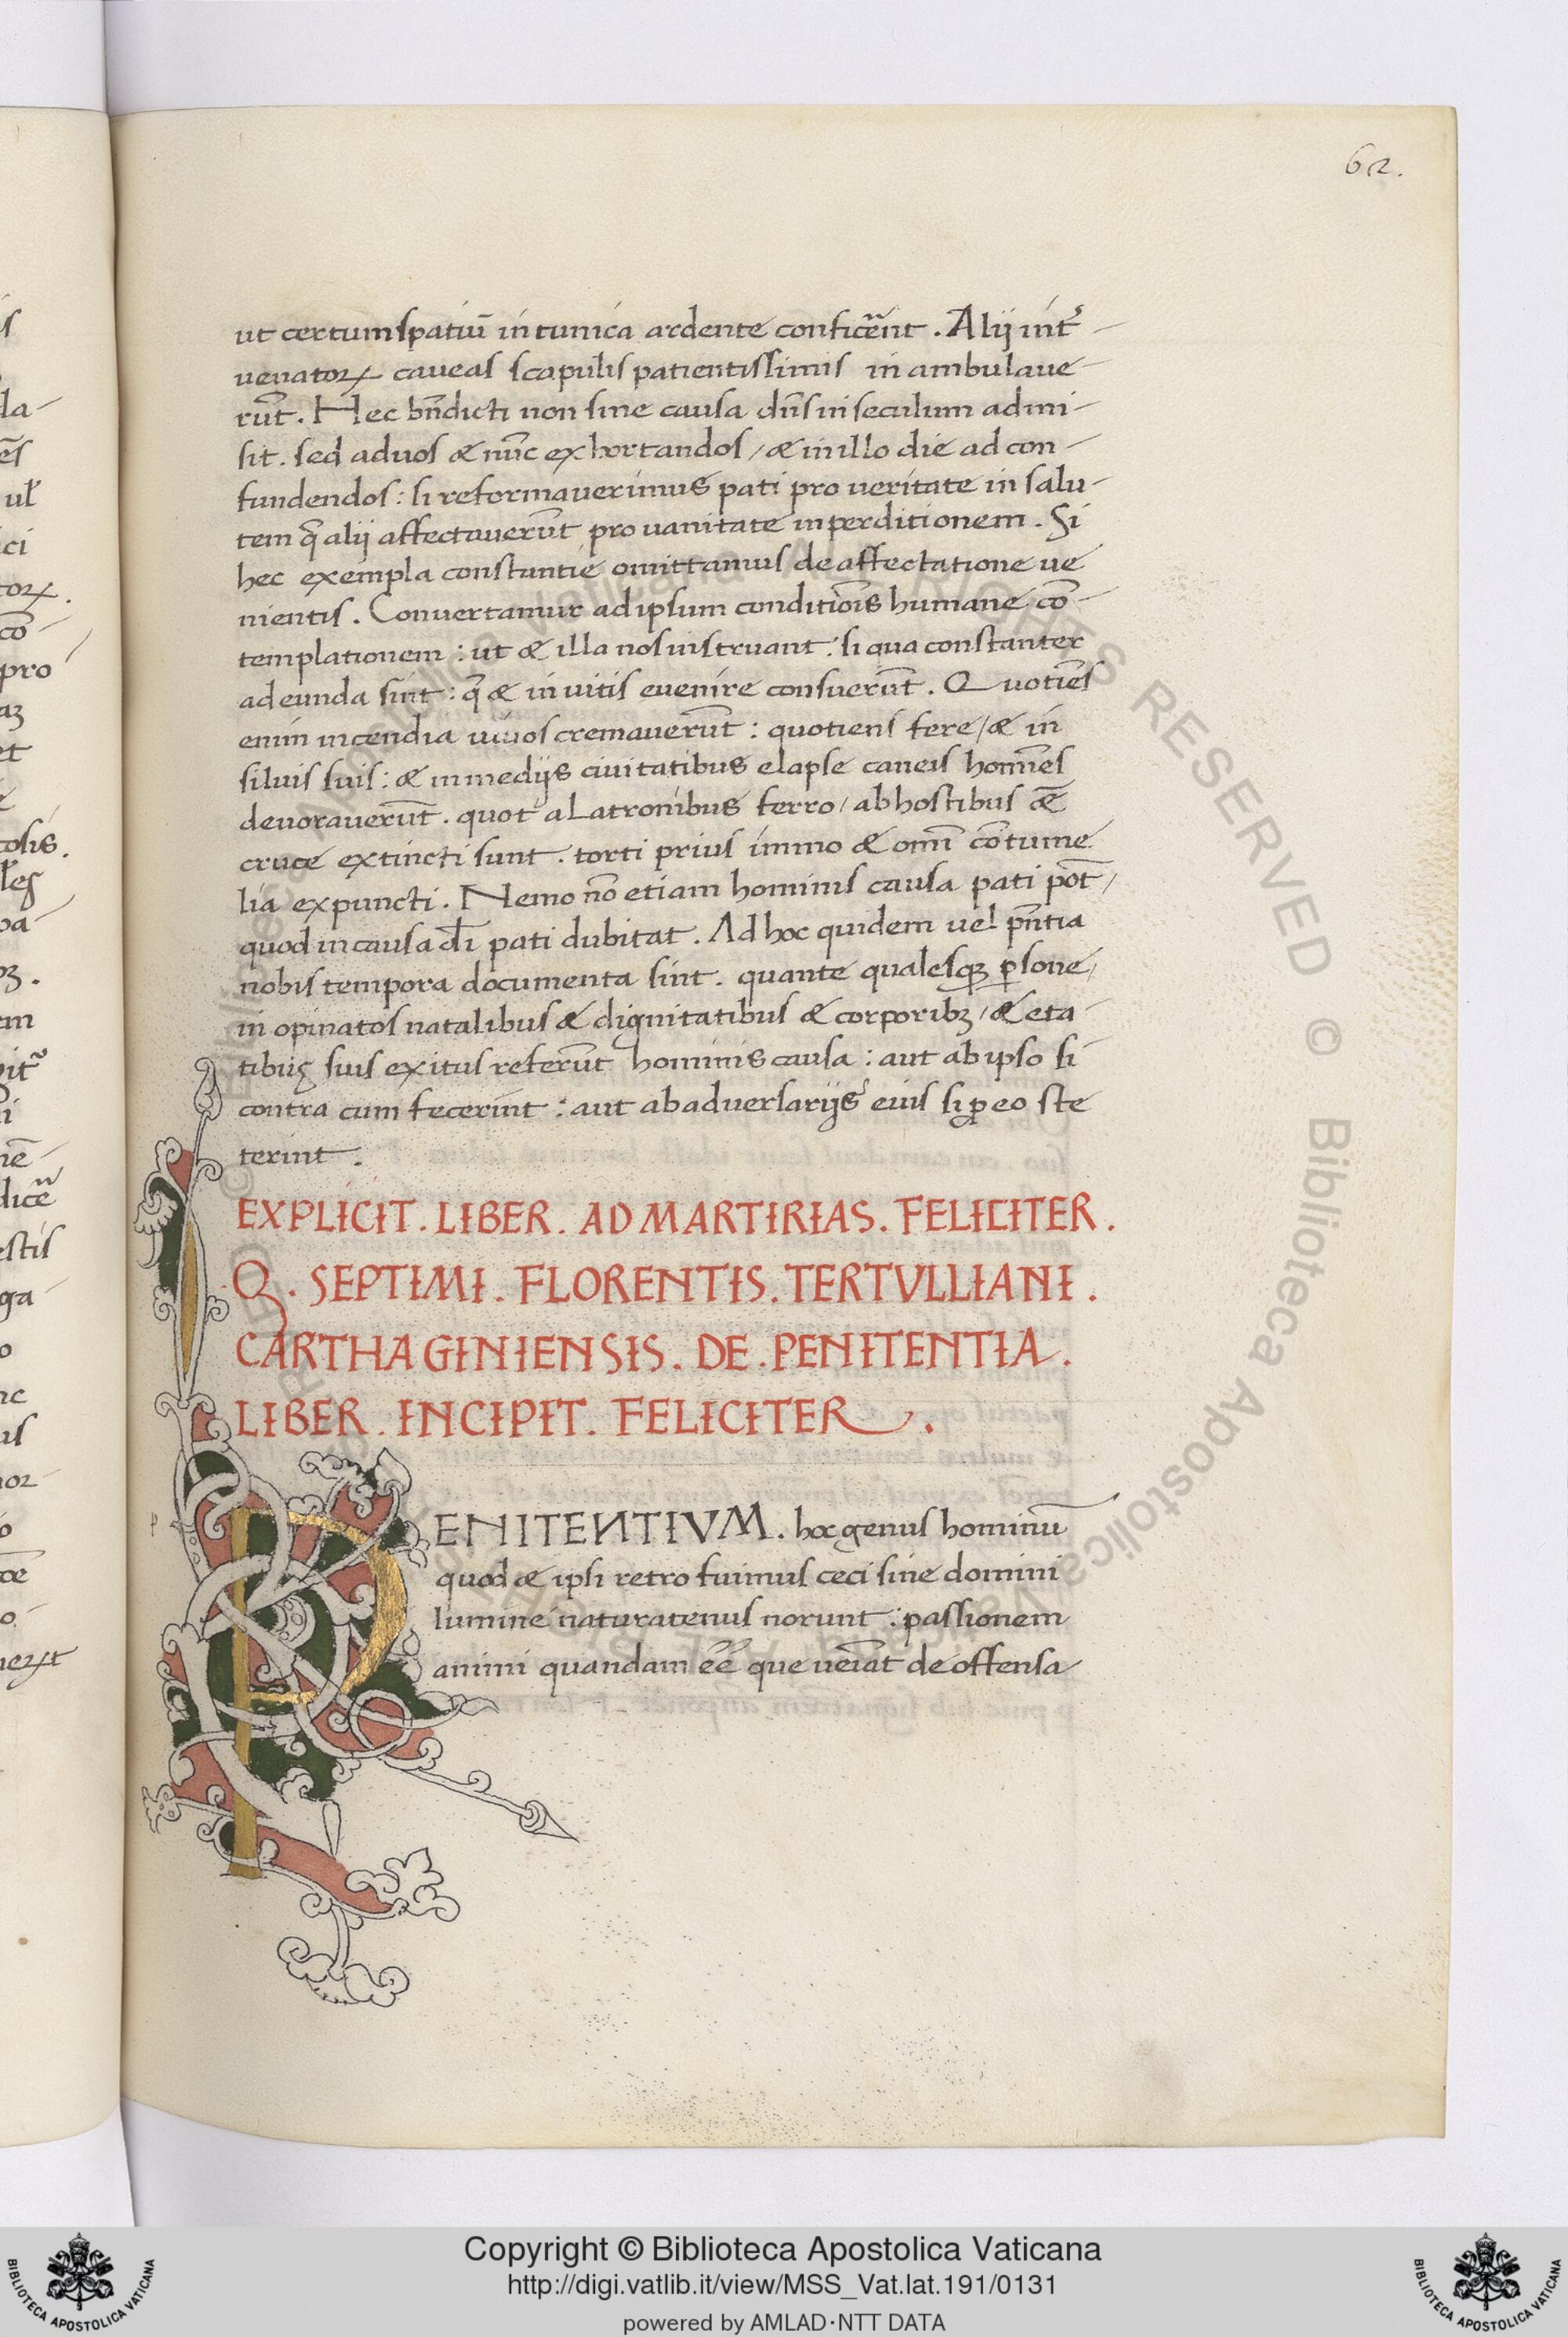 62.
ut certum spatiū in tunica ardente conficerent. Alij inter
venatorꝝ caveas scapulis patientissimis in ambulave-
rūt. Hec bn̄dicti non sine causa dn̄s in seculum admi-
sit. sed ad vos & nūc exhortandos / & in illo die ad con-
fundendos: si reformaverimus pati pro veritate in salu-
tem q̄ alij affectaverūt pro vanitate in perditionem. Si
hec exempla constantie omittamus de affectatione ve
nientis. Convertamur ad ipsum conditiōis humane cō-
templationem: ut & illa nos instruant: si qua constanter
adeunda sint: q̄ & invitis evenire consuerūt. Quotiēs
enim incendia vivos cremaverūt: quotiens fere / & in
silvis suis: & in medijs civitatibus elapse caveis homīes
devoraverūt. quot a Latronibus ferro / ab hostibus &̄
cruce extincti sunt. torti prius immo & omī cōtume
lia expuncti. Nemo nō etiam hominis causa pati pōt /
quod in causa dī pati dubitat. Ad hoc quidem vel pn̄tia
nobis tempora documenta sint. quante qualesqꝫ ꝑsone /
in opinatos natalibus & dignitatibus & corporibꝫ / & eta-
tibus suis exitus referūt hominis causa: aut ab ipso si
contra eum fecerint: aut ab adversarijs eius si ꝑ eo ste
terint.
EXPLICIT. LIBER. AD MARTIRIAS. FELICITER.
Q. SEPTIMI. FLORENTIS. TERTVLLIANI.
CARTHAGINIENSIS. DE. PENITENTIA.
LIBER. INCIPIT. FELICITER.
PENITENTIVM. hoc genus hominū
quod & ipsi retro fuimus ceci sine domini
lumine naturatenus norunt: passionem
animi quandam eē que veniat de offensa
© Biblioteca Apostolica Vaticana
Copyright © Biblioteca Apostolica Vaticana
http://digi.vatlib.it/view/MSS_Vat.lat.191/0131
powered by AMLAD·NTT DATA
BIBLIOTECA APOSTOLICA VATICANA
BIBLIOTECA APOSTOLICA VATICANA